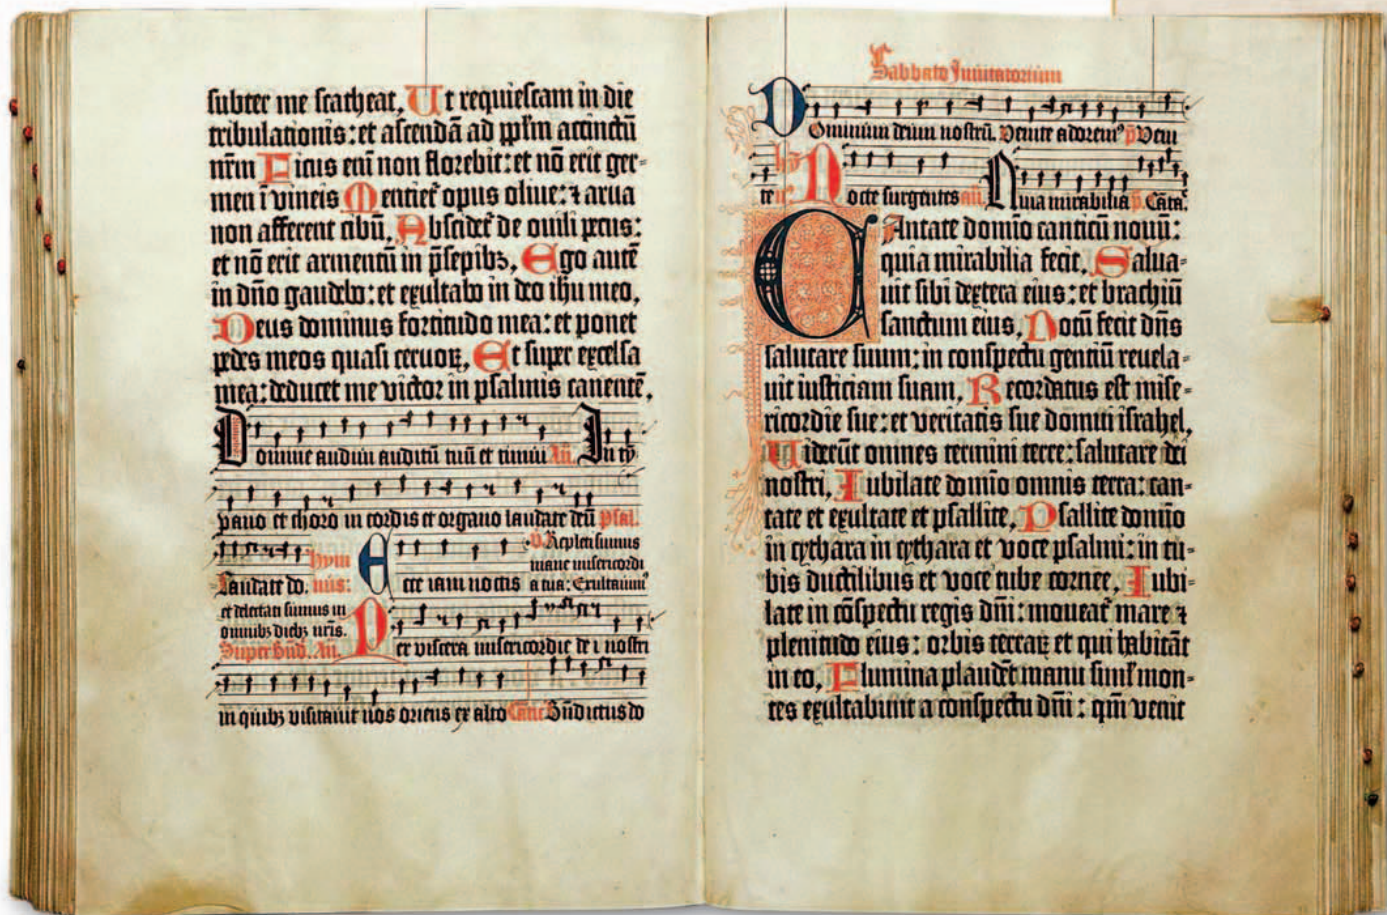 subter me scatheat. Ut requiescam in die
tribulationis: et ascendā ad pplm accinctū
nrm Ficus eni non florebit: et nō erit ger=
men ī vineis Mentiet opus olive: ⁊ arua
non afferent cibū. Abscidet de ouili pecus:
et nō erit armentū in psepibꝫ. Ego autē
in dno gaudebo: et exultabo in deo ihu meo.
Deus dominus fortitudo mea: et ponet
pedes meos quasi ceruoꝝ. Et super excelsa
mea: deducet me victor in psalmis canentē.
Domine audiui auditū tuū et timui An. In ty
pano et choro in cordis et organo laudate deū psal.
Laudate do. hymnus: Ecce iam noctis
V. Repleti sumus
mane misericordi
a tua: Exultauim⁹
et delectati sumus in
omnibꝫ diebꝫ nris.
Super Bnd. An. Per viscera misericordie dei nostri
in quibꝫ visitauit nos oriens ex alto Cant Bndictus do
Sabbato Inuitatorium
Dominum deum nostrū. Venite adorem⁹ p Veni
te Nocte surgentes an. Quia mirabilia p. Cāta.
CAntate domīo canticū nouū:
quia mirabilia fecit. Salua=
uit sibi dextera eius: et brachiū
sanctum eius. Notū fecit dns
salutare suum: in conspectu gentiū reuela=
uit iusticiam suam. Recordatus est mise=
ricordie sue: et veritatis sue domui israhel.
Uiderūt omnes termini terre: salutare dei
nostri. Iubilate domīo omnis terra: can=
tate et exultate et psallite. Psallite domīo
in cythara in cythara et voce psalmi: in tu=
bis ductilibus et voce tube cornee. Iubi=
late in cōspectu regis dni: moueat mare ⁊
plenitudo eius: orbis terraꝝ et qui habitāt
in eo. Flumina plaudēt manu simł mon=
tes exultabunt a conspectu dni: qm venit